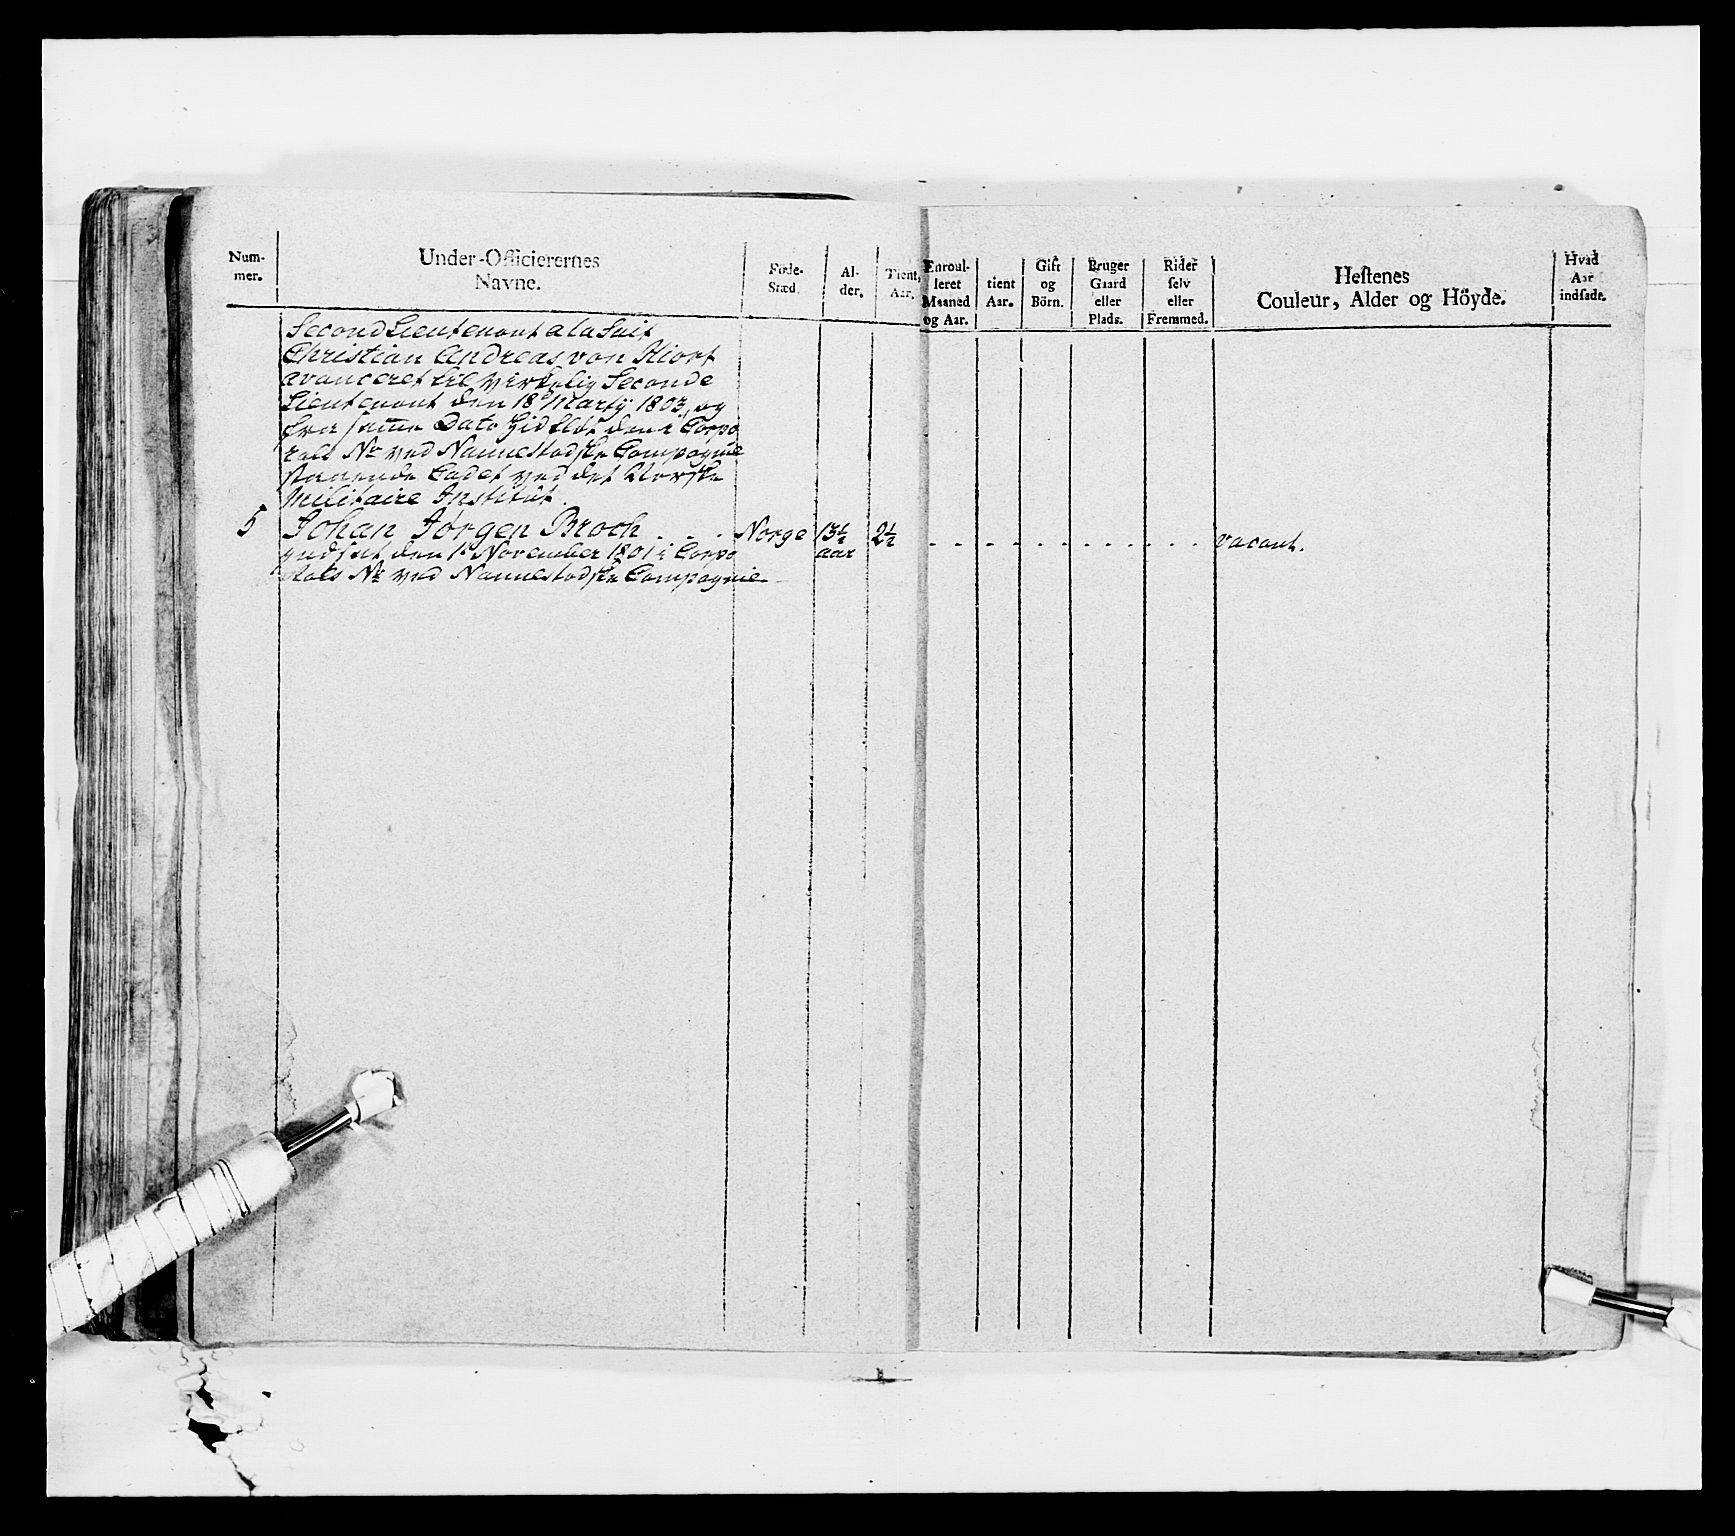 Num-
mer.
Under-Officierernes
Navne.
Føde-
Sted.
Al-
der.
Tient,
Aar.
Enroul-
leret
Maaned
og Aar.
tient
Aar.
Gift
og
Börn.
Bruger
Gaard
eller
Plads.
Rider
selv
eller
Fremmed.
Hestenes
Couleur, Alder og Höyde.
Hvad
Aar
indsadt.
Second Lieutenant a la Suit
Christian Andreas von Hiort
avanceret til virkelig Seconde
Lieutenant den 18de Martij 1803, og
fra samme Dato den i Corpo
rals No ved Nannestadske Compagnie
staaende Cadet ved det Norske
Militaire Institut.
5 Johan Jørgen Broch . . . Norge 13½ aar 2½ . . . . . . . . . . . . vacant.
indsat den 1te November 1801 i Corpo
rals No ved Nannestadske Compagnie